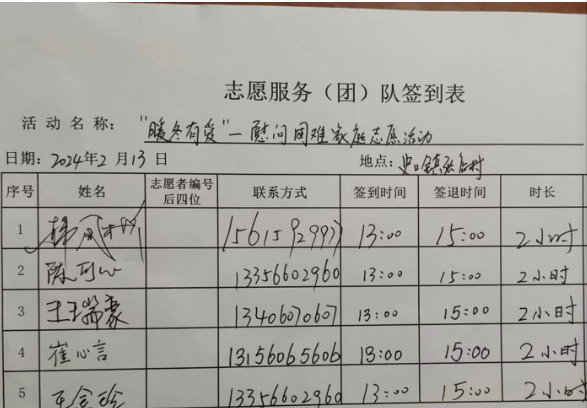 志愿服务（团）队签到表
活动名称： "暖冬有爱"—慰问困难家庭志愿活动
日期：2024年2月13日 地点：史口镇张后村
序号 姓名 志愿者编号后四位 联系方式 签到时间 签退时间 时长
1 杨风 13:00 15:00 2小时
2 陈可心 13356602960 13:00 15:00 2小时
3 王瑞豪 13406070607 13:00 15:00 2小时
4 崔心言 13156065606 13:00 15:00 2小时
5 王金珍 13356602960 13:00 15:00 2小时